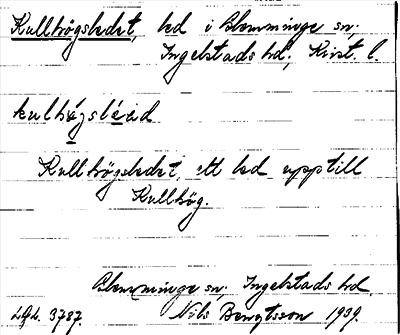 Kullhögsledet, led i Blemminge sn,
Ingelstads hd, Krist. l.
kulhǫgsléad
Kullhögsledet, ett led upptill
Kullhög.
Blemminge sn, Ingelstads hd.
LGL. 3787. Nils Bengtsson 1939.